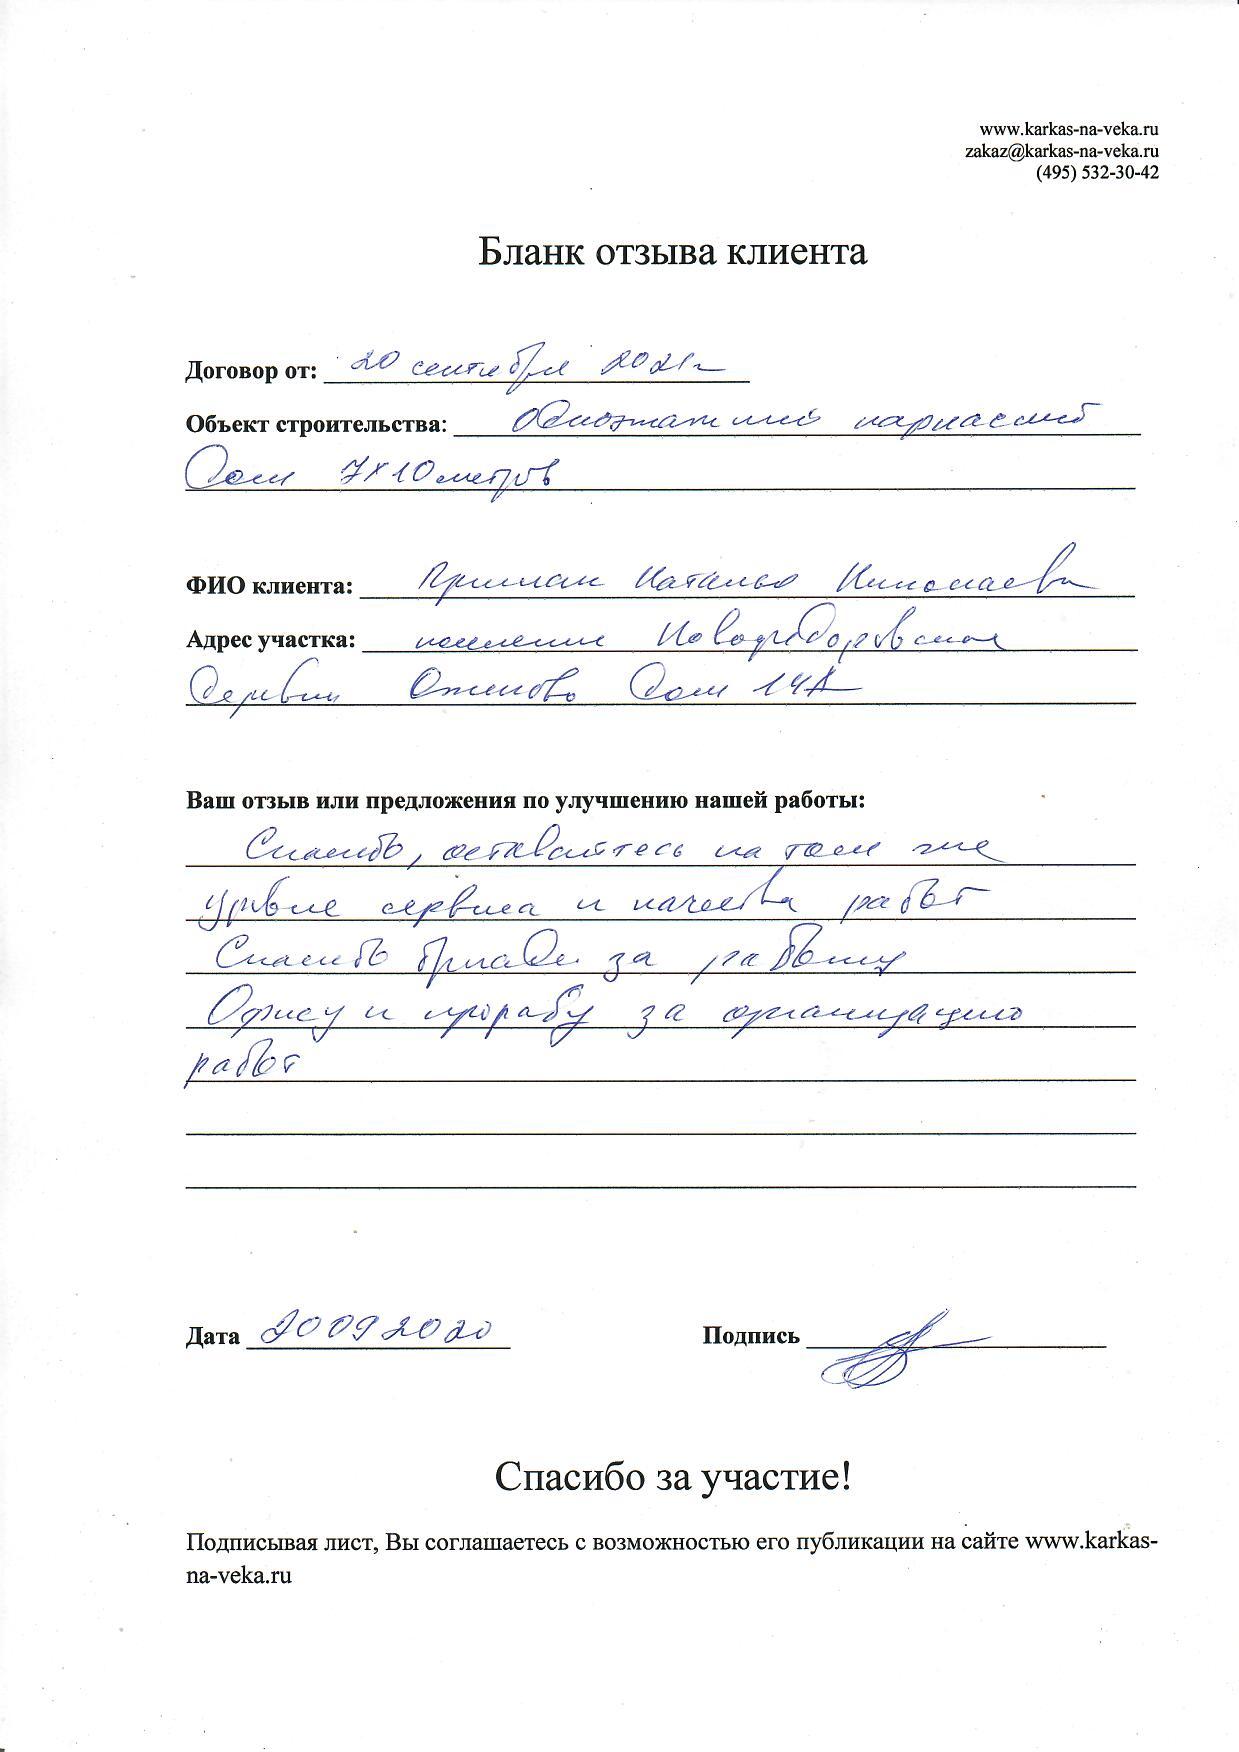 www.karkas-na-veka.ru
zakaz@karkas-na-veka.ru
(495) 532-30-42
Бланк отзыва клиента
Договор от: 20 сентября 2021г
Объект строительства: Одноэтажный каркасный
Дом 7х10 метров
ФИО клиента: Наталья Николаевн
Адрес участка: поселение Новофедоровское
Деревня дом 14А
Ваш отзыв или предложения по улучшению нашей работы:
Спасибо, оставайтесь на том же
уровне сервиса и качества работ
Спасибо бригаде за работу
Офису и прорабу за организацию
работ
Дата 20092020 Подпись
Спасибо за участие!
Подписывая лист, Вы соглашаетесь с возможностью его публикации на сайте www.karkas-
na-veka.ru